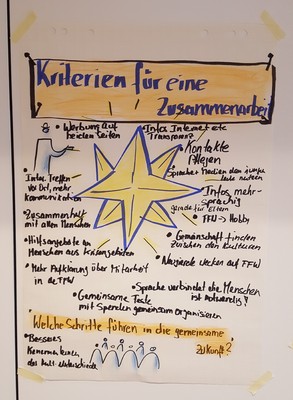 Kriterien für eine
Zusammenarbeit
• Werbung auf
beiden Seiten
• Infos Internet etc
Transparenz?
• Kontakte
Pflegen
Sprache: Medien den
heute nutzen
• Infos Treffen
vor Ort, mehr
Kommunikation
• Infos mehr-
sprachig
gerade für Eltern
• FFW → Hobby
• Zusammenhalt
mit allen Menschen
• Gemeinschaft finden
zwischen den Kulturen
• Hilfsangebote an
Menschen aus Krisengebieten
• Neugierde wecken auf FFW
• Mehr Aufklärung über Mitarbeit
in der FFW
• Sprache verbindet die Menschen
ist notwendig?
• Gemeinsame Feste
mit Spenden gemeinsam organisieren
Welche Schritte führen in die gemeinsame
Zukunft?
• Besseres
Kennenlernen,
der Kult. Unterschiede